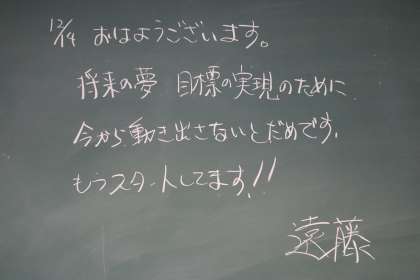 12/14 おはようございます。
将来の夢 目標の実現のために
今から動き出さないとだめです.
もうスタートしてます!!
遠藤